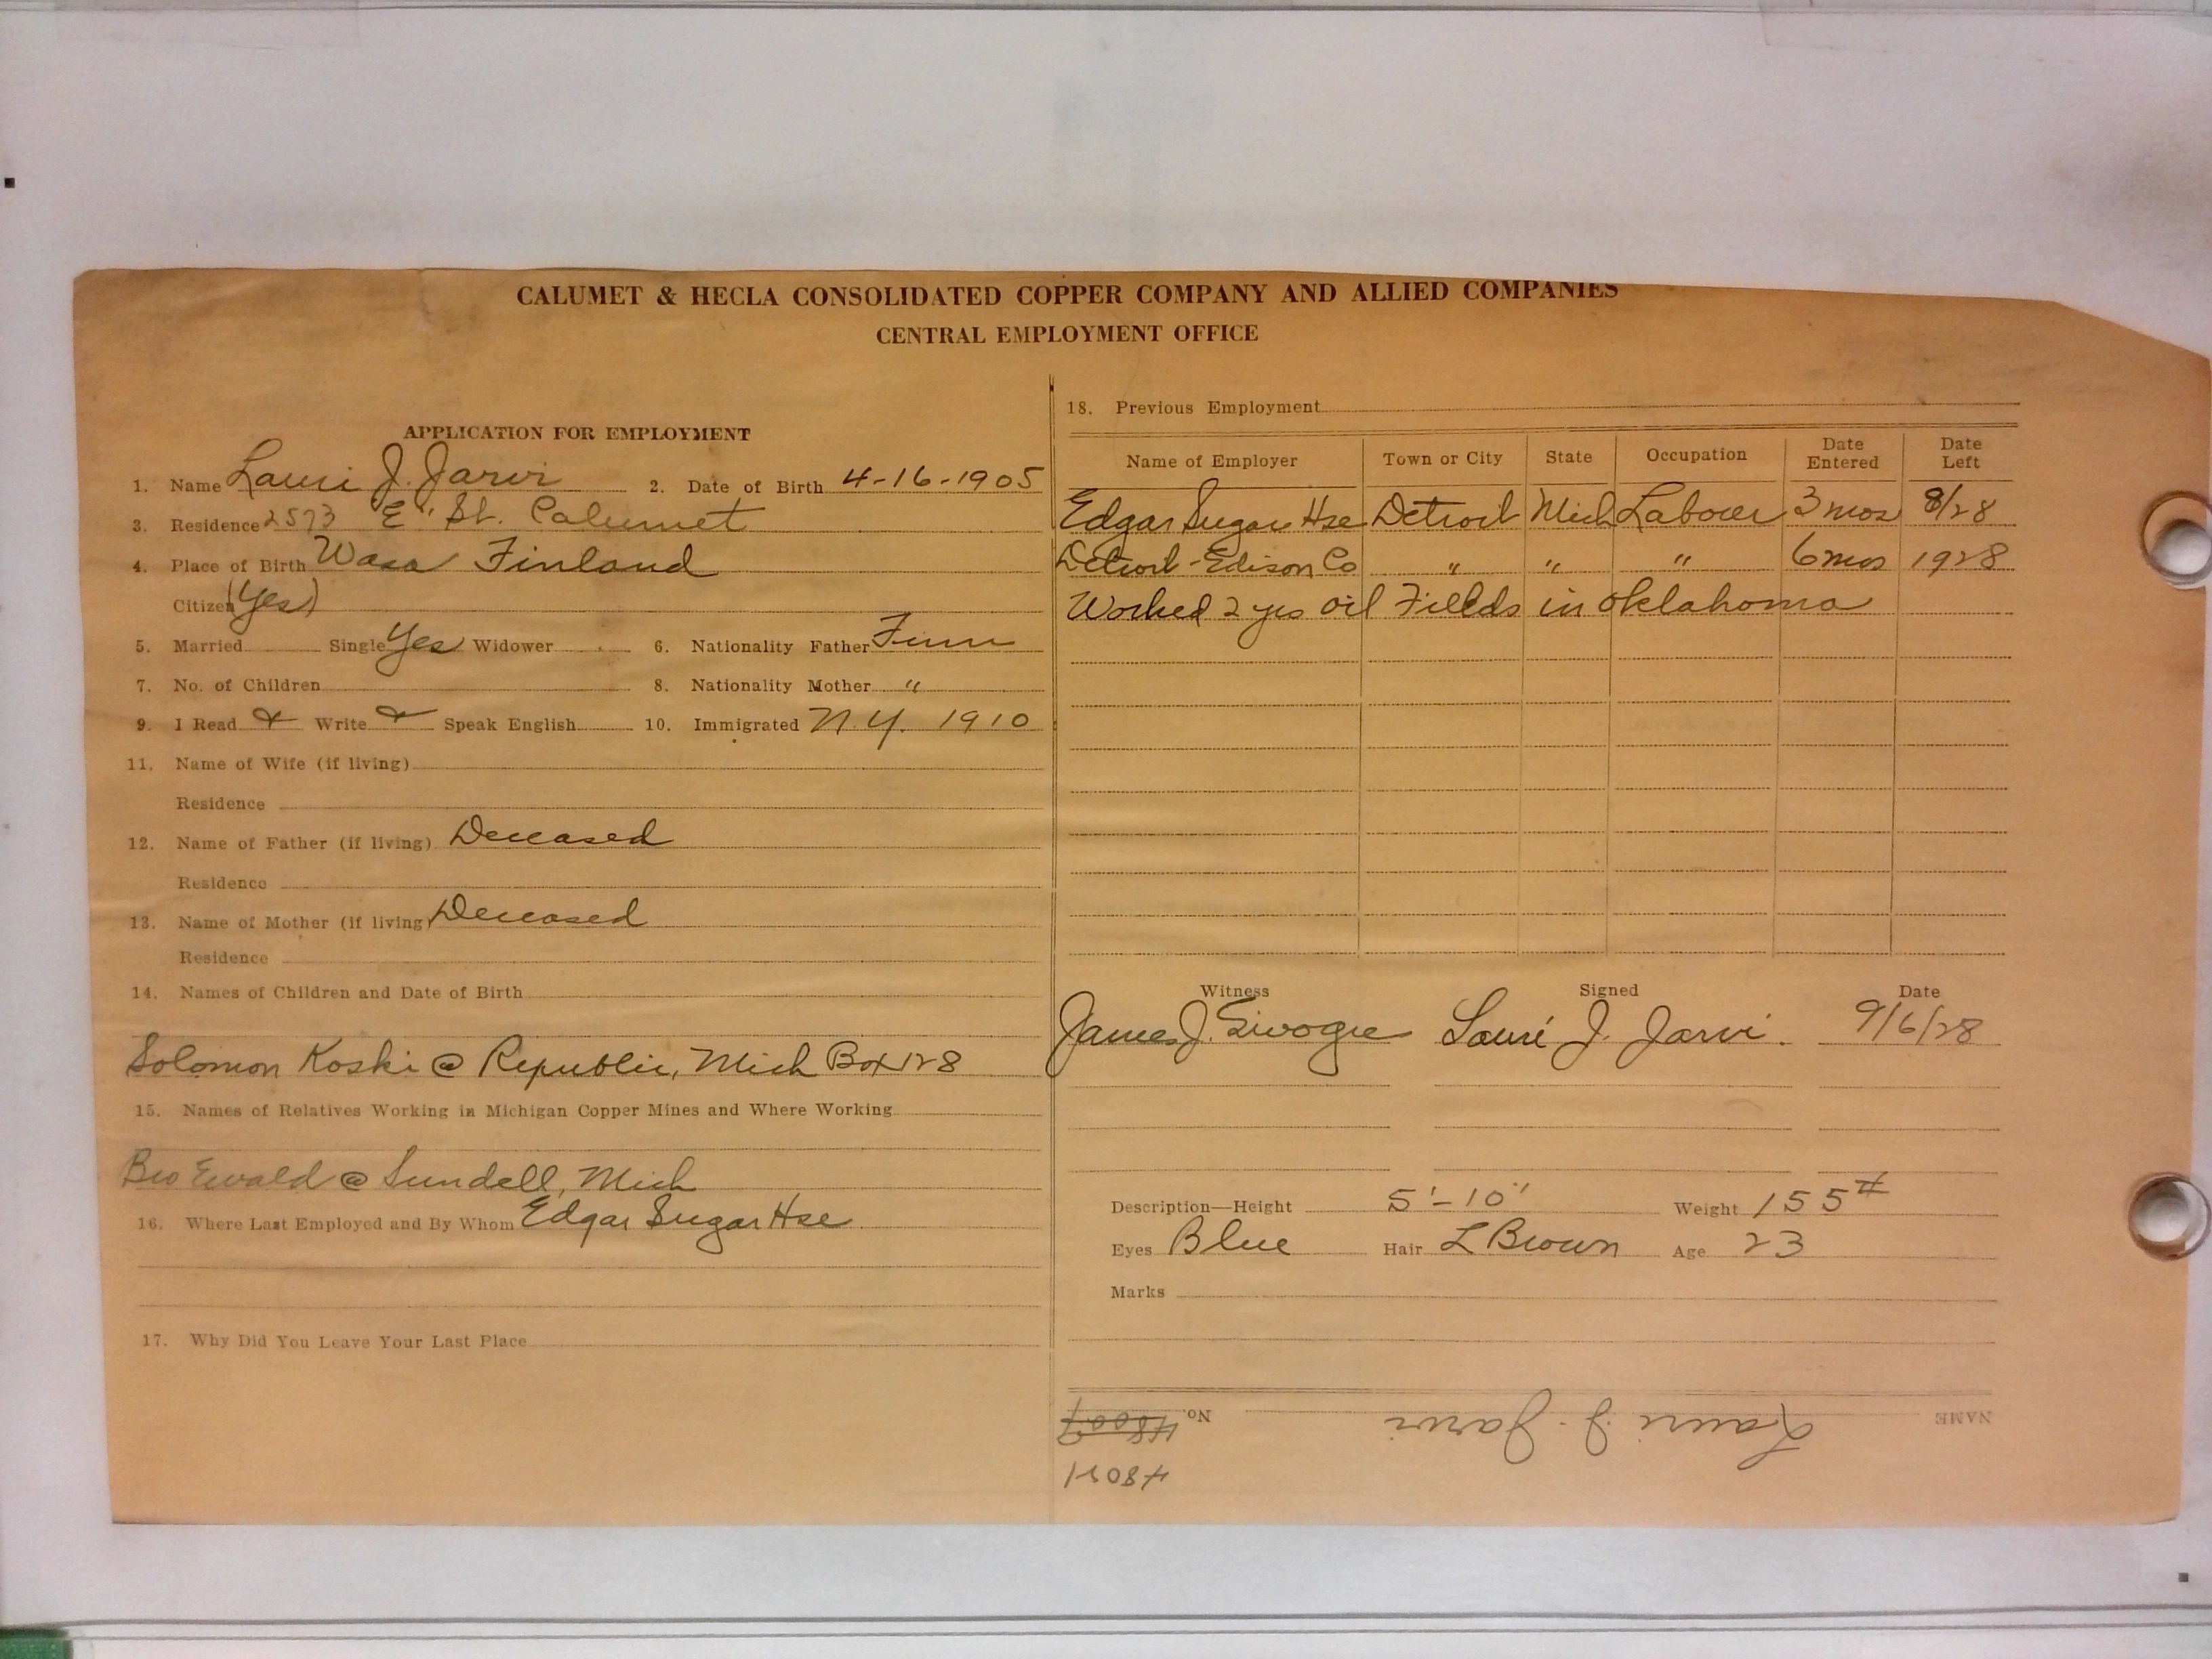 CALUMET & HECLA CONSOLIDATED COPPER COMPANY AND ALLIED COMPANIES
CENTRAL EMPLOYMENT OFFICE
APPLICATION FOR EMPLOYMENT
1. Name Lauri J. Jarvi 2. Date of Birth 4-16-1905
3. Residence 2573 "E" St. Calumet
4. Place of Birth Wasa Finland
Citizen (Yes)
5. Married Single Yes Widower 6. Nationality Father Finn
7. No. of Children 8. Nationality Mother "
9. I Read & Write & Speak English 10. Immigrated N.Y. 1910
11. Name of Wife (if living)
Residence
12. Name of Father (if living) Deceased
Residence
13. Name of Mother (if living) Deceased
Residence
14. Names of Children and Date of Birth
Solomon Koski @ Republic, Mich Box 128
15. Names of Relatives Working in Michigan Copper Mines and Where Working
Bro Ewald @ Sundell, Mich
16. Where Last Employed and By Whom Edgar Sugar Hse
17. Why Did You Leave Your Last Place
18. Previous Employment
Name of Employer Town or City State Occupation Date Entered Date Left
Edgar Sugar Hse Detroit Mich Laborer 3 mos 8/28
Detroit-Edison Co " " " 6 mos 1928
Worked 2 yrs oil Fields in Oklahoma
Witness Signed Date
James J. Lauri J. Jarvi. 9/6/28
Description—Height 5'-10" Weight 155#
Eyes Blue Hair L Brown Age 23
Marks
NAME Lauri J. Jarvi No. 48007
48021